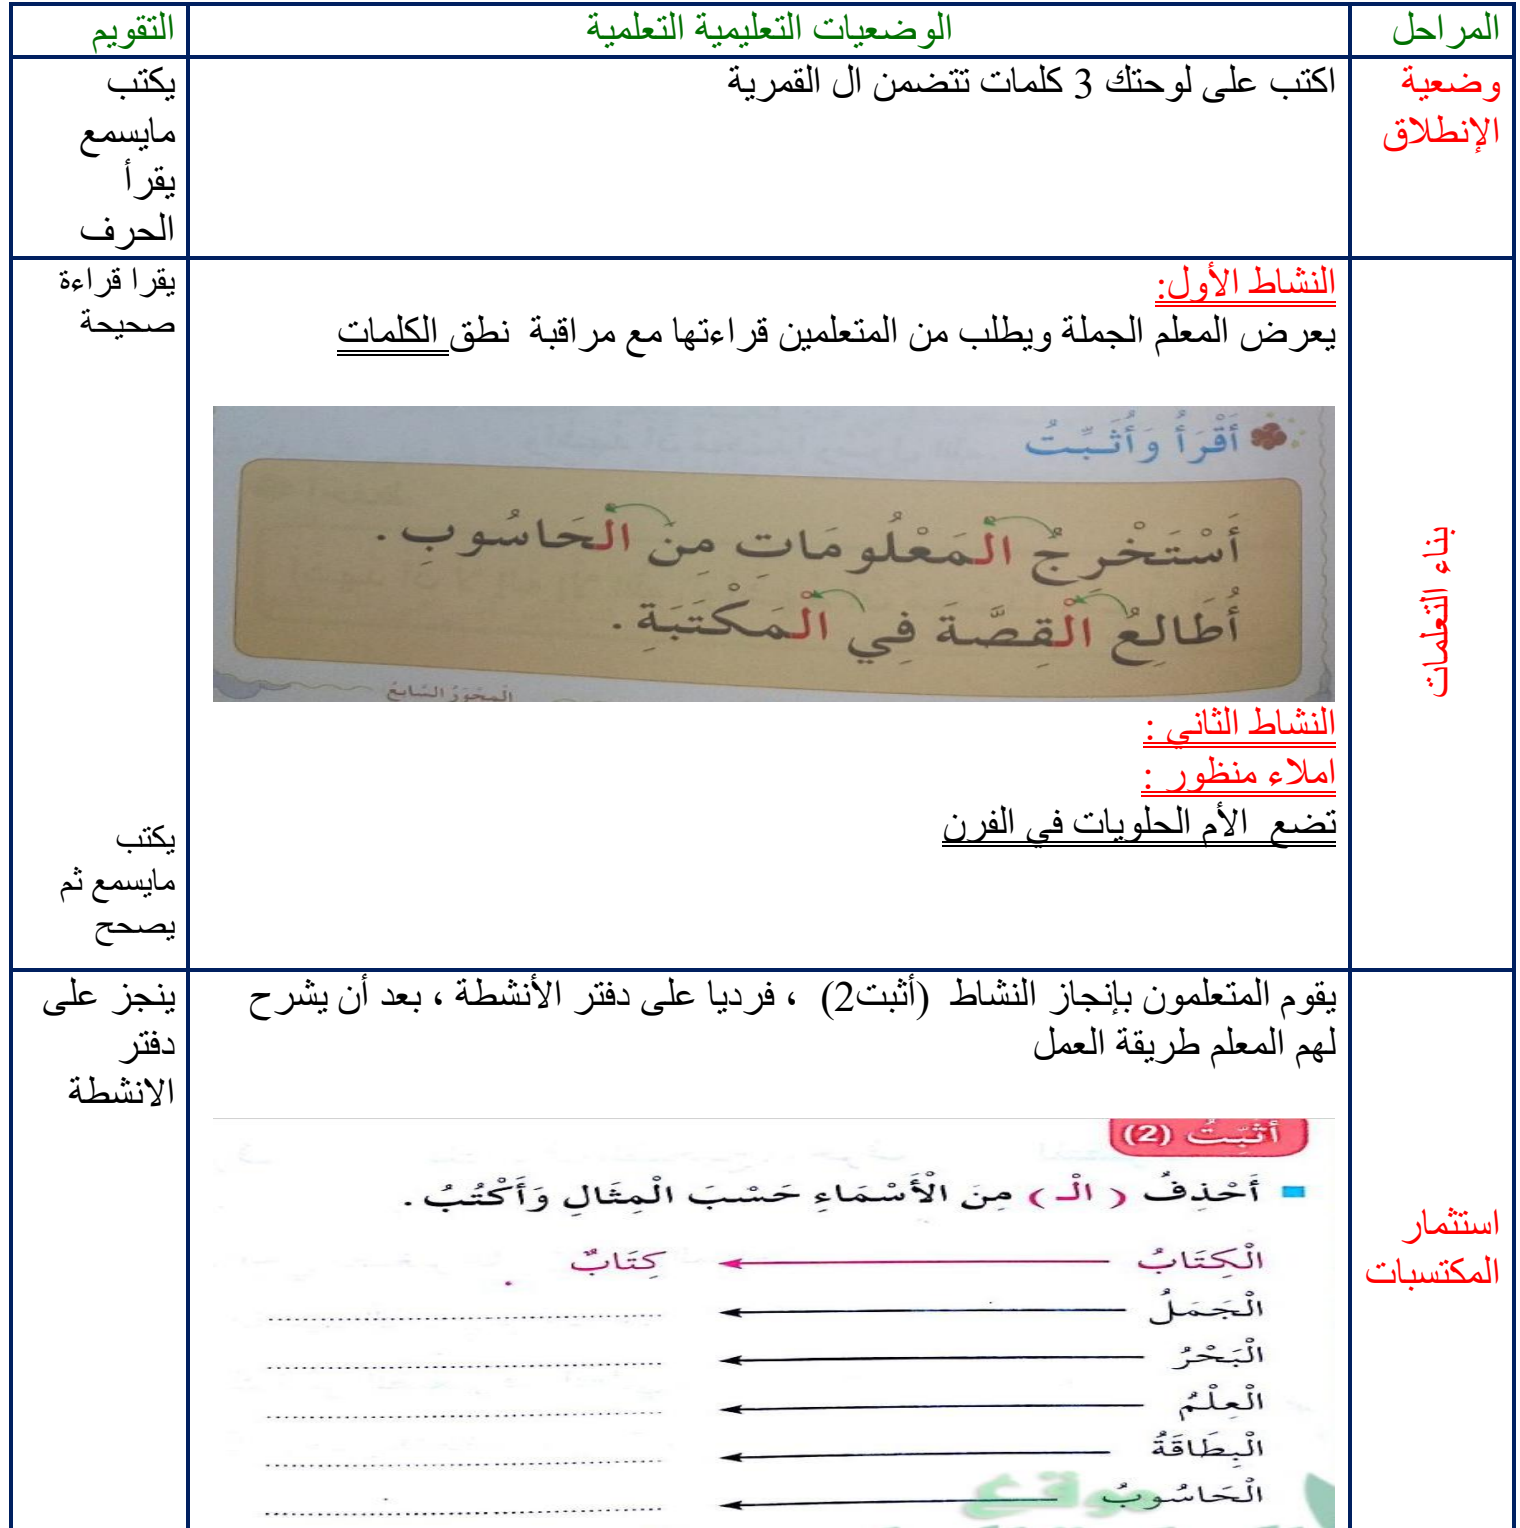 المراحل
الوضعيات التعليمية التعلمية
التقويم
وضعية
الإنطلاق
اكتب على لوحتك 3 كلمات تتضمن ال القمرية
يكتب
مايسمع
يقرأ
الحرف
بناء التعلمات
النشاط الأول:
يعرض المعلم الجملة ويطلب من المتعلمين قراءتها مع مراقبة نطق الكلمات
أَقْرَأُ وَأُثَبِّتُ
أَسْتَخْرِجُ الْمَعْلُومَاتِ مِنَ الْحَاسُوبِ.
أُطَالِعُ الْقِصَّةَ فِي الْمَكْتَبَةِ.
الْمِحْوَرُ السَّابِعُ
النشاط الثاني :
املاء منظور :
تضع الأم الحلويات في الفرن
يقرا قراءة
صحيحة
يكتب
مايسمع ثم
يصحح
استثمار
المكتسبات
يقوم المتعلمون بإنجاز النشاط (أثبت2) ، فرديا على دفتر الأنشطة ، بعد أن يشرح
لهم المعلم طريقة العمل
أُثَبِّتُ (2)
أَحْذِفُ ( الْـ ) مِنَ الْأَسْمَاءِ حَسْبَ الْمِثَالِ وَأَكْتُبُ.
الْكِتَابُ كِتَابٌ
الْجَمَلُ
الْبَحْرُ
الْعِلْمُ
الْبِطَاقَةُ
الْحَاسُوبُ
موقع
ينجز على
دفتر
الانشطة